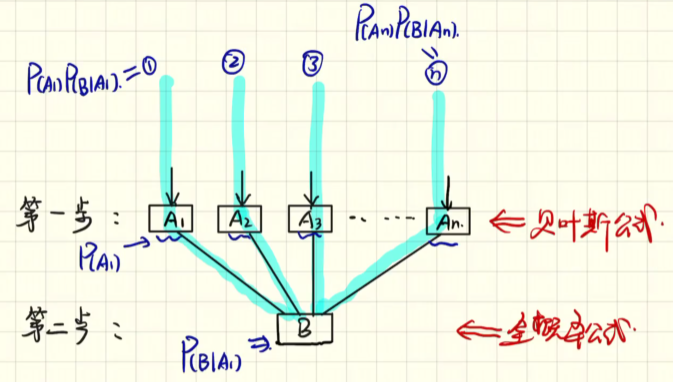 P(An)P(B|An).
P(A₁)P(B|A₁).=① ② ③ ⓝ
第一步: A₁ A₂ A₃ ‥ ‥‥ An. ⇐ 贝叶斯公式.
P(A₁) →
第二步: B ⇐ 全概率公式.
P(B|A₁) ⇒